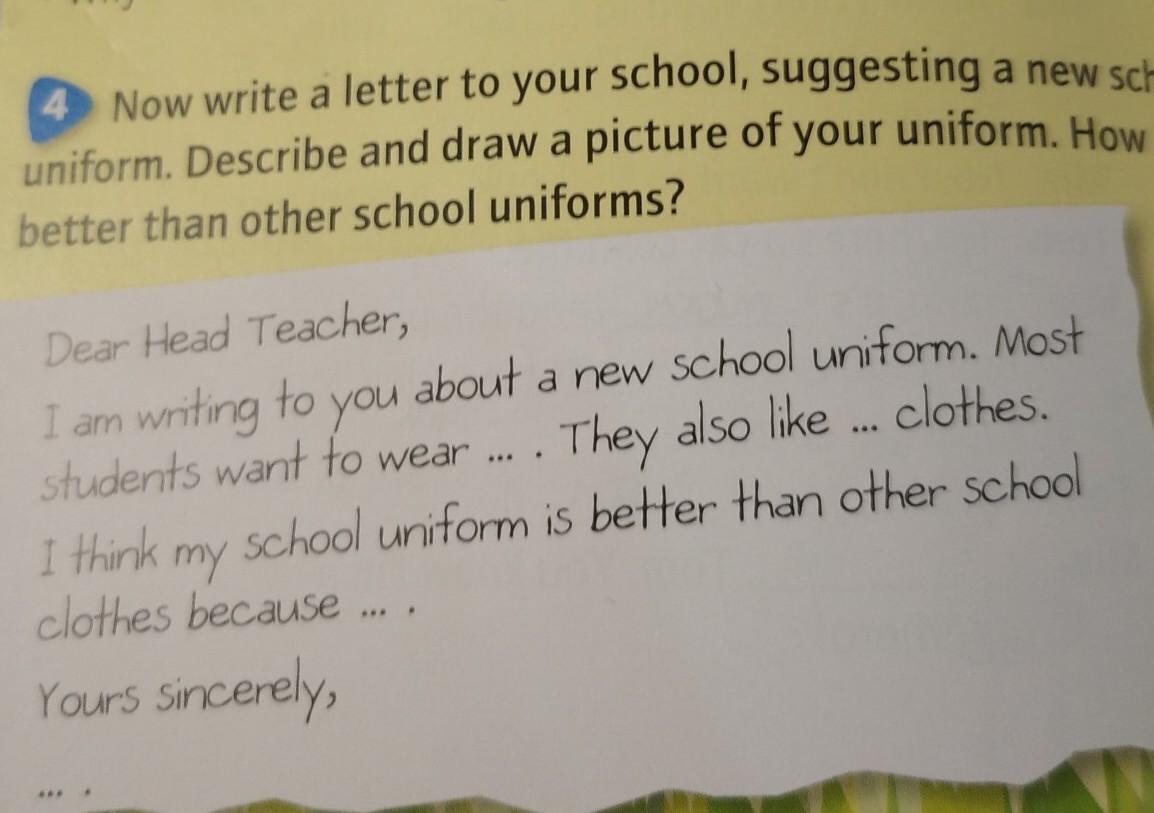 4 Now write a letter to your school, suggesting a new
uniform. Describe and draw a picture of your uniform. How
better than other school uniforms?
Dear Head Teacher,
I am writing to you about a new school uniform. Most
students want to wear ... . They also like ... clothes.
I think my school uniform is better than other school
clothes because ... .
Yours sincerely,
... .